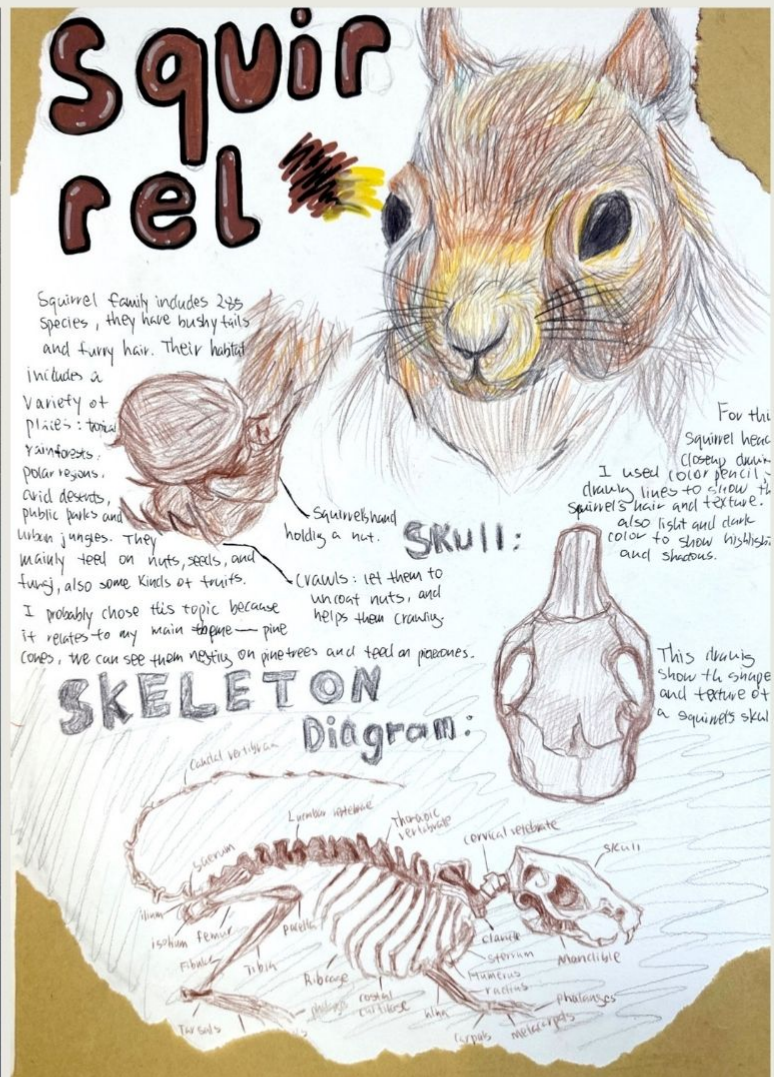 Squir
rel
Squirrel family includes 285
species, they have bushy tails
and furry hair. Their habitat
includes a
variety of
places: tropical
rainforests.
polar regions.
arid deserts,
public parks and
urban jungles. They
mainly feed on nuts, seeds, and
fungi, also some kinds of fruits.
I probably chose this topic because
it relates to my main theme — pine
cones, we can see them nesting on pine trees and feed on pinecones.
Squirrel's hand
holding a nut.
Crawls: let them to
uncoat nuts, and
helps them crawling.
For thi
Squirrel head
closeup drawin
I used color pencil,
drawing lines to show th
squirrel's hair and texture.
also light and dark
color to show highlight
and shadows.
Skull:
This drawing
show th shape
and texture of
a squirrel's skul
SKELETON
Diagram:
Caudal vertebrae
Lumbar vertebrae
Thoracic
vertebrate
cervical vertebrate
skull
sacrum
ilium
ischium
femur
patella
Fibula
Tibia
Ribcage
costal
cartilage
clavicle
sternum
Humerus
radius
Mandible
ulna
phalanges
Tarsals
Carpals
metacarpals